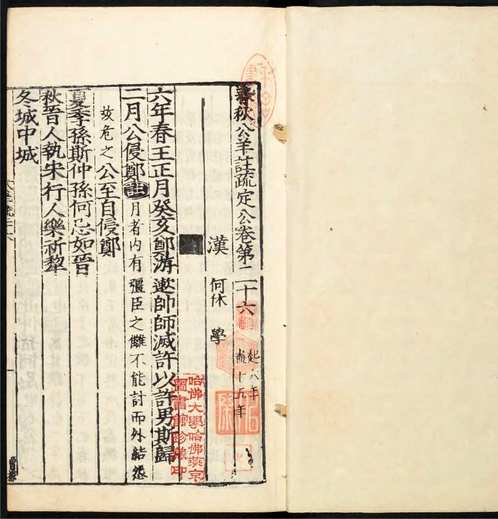 春秋公羊註疏定公卷第二十六 起六年 盡十五年
漢 何休 學
六年春王正月癸亥鄭游遬帥師滅許以許男斯歸
二月公侵鄭 月者內有彊臣之讎不能討而外結怨
故危之公至自侵鄭
夏季孫斯仲孫何忌如晉
秋晉人執宋行人樂祁犂
冬城中城
哈佛大學哈佛燕京
圖書館珍藏印